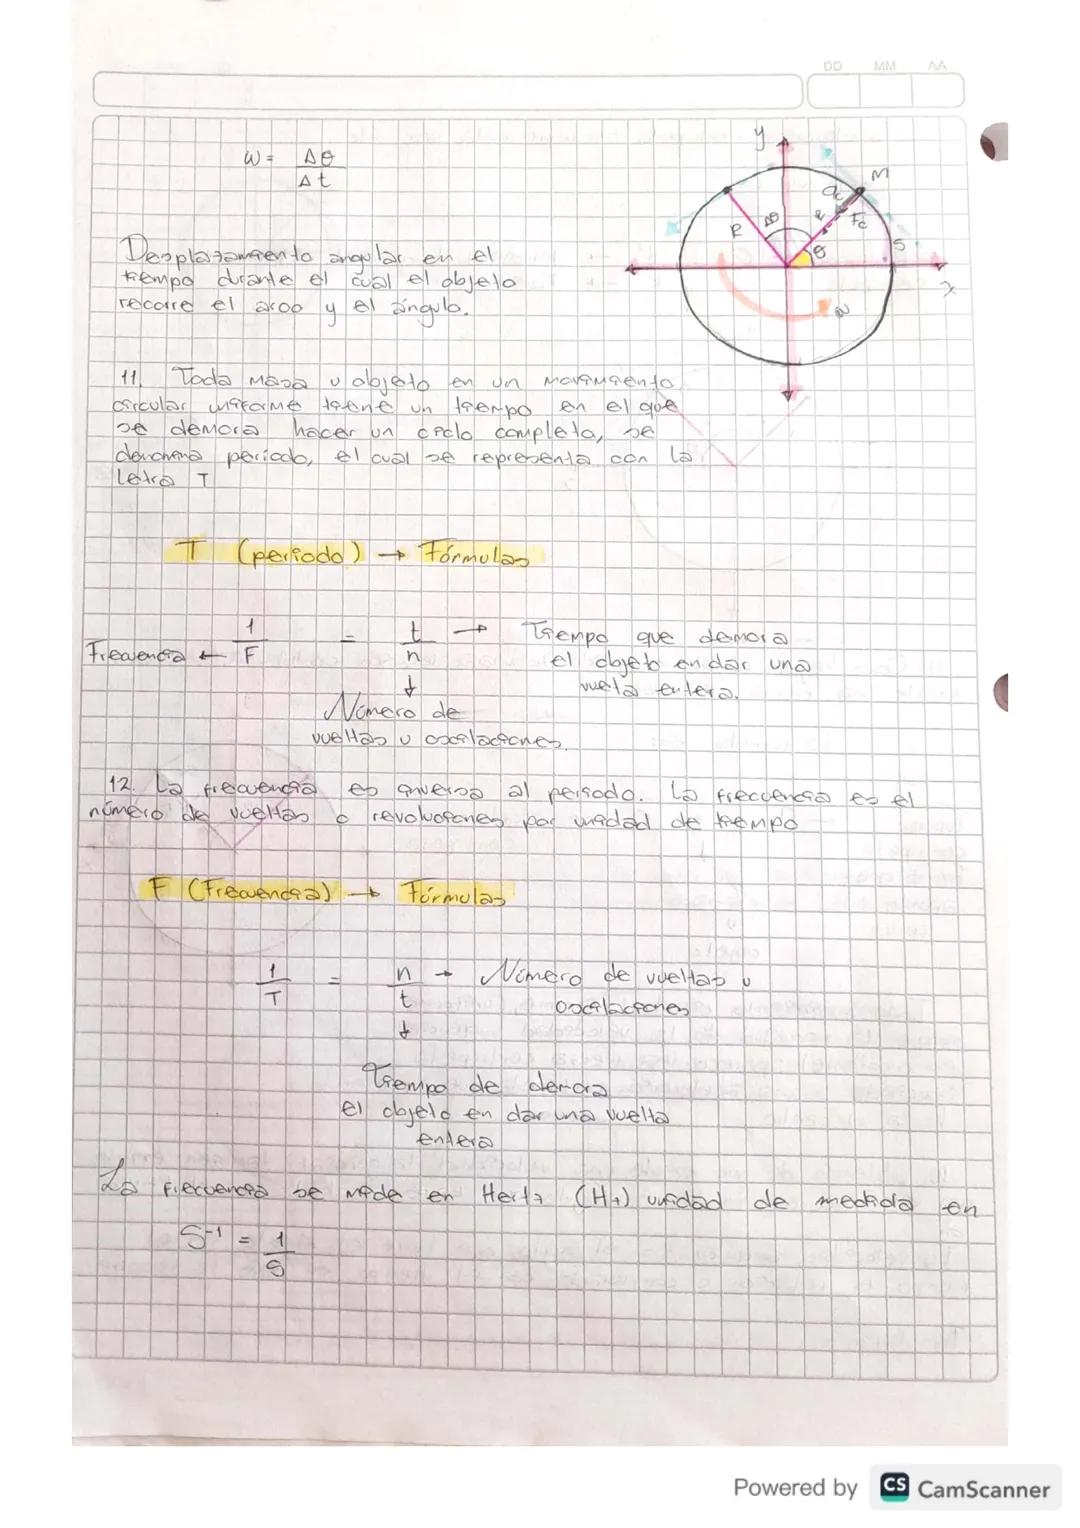 DD MM AA
W = Δθ
Δt
Desplazamiento angular en el
tiempo durante el cual el objeto
recorre el arco y el ángulo.
y
M
ac
R
Δθ
R
Fc
S
θ
x
W
11. Toda masa u objeto en un movimiento
circular uniforme tiene un tiempo en el que
se demora hacer un ciclo completo, se
denomina periodo, el cual se representa con la
letra T
T (periodo) → Fórmulas
1 = t → Tiempo que demora
Frecuencia ← F n el objeto en dar una
↓ vuelta entera.
Número de
vueltas u oscilaciones.
12. La frecuencia es inversa al periodo. La frecuencia es el
número de vueltas o revoluciones por unidad de tiempo
F (Frecuencia) → Fórmulas
1 = n → Número de vueltas u
T t oscilaciones
↓
Tiempo de demora
el objeto en dar una vuelta
entera
La frecuencia se mide en Hertz (Hz) unidad de medida en
S-1 = 1
S
Powered by CS CamScanner